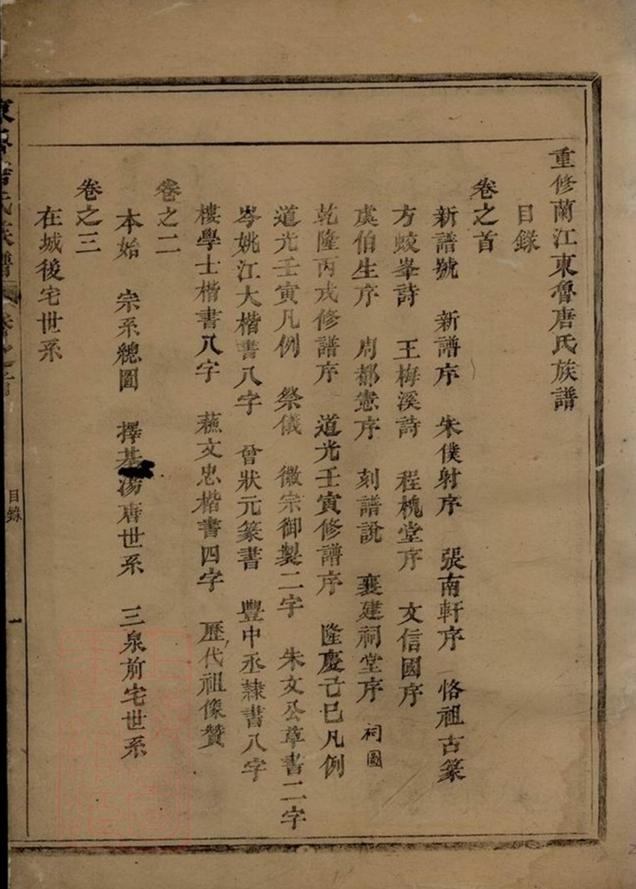 重修蘭江東魯唐氏族譜
目錄
卷之首
新譜號 新譜序 朱僕射序 張南軒序 恪祖古篆
方蛟峯詩 王梅溪詩 程槐堂序 文信國序
虞伯生序 周都憲序 刻譜說 襄建祠堂序 祠圖
乾隆丙戌修譜序 道光壬寅修譜序 隆慶己巳凡例
道光壬寅凡例 祭儀 徽宗御製二字 朱文公草書二字
岑姚江大楷書八字 曾狀元篆書 豐中丞隸書八字
樓學士楷書八字 蘇文忠楷書四字 歷代祖像贊
卷之二
本始 宗系總圖 擇基湯唐世系 三泉前宅世系
卷之三
在城後宅世系
目錄
一